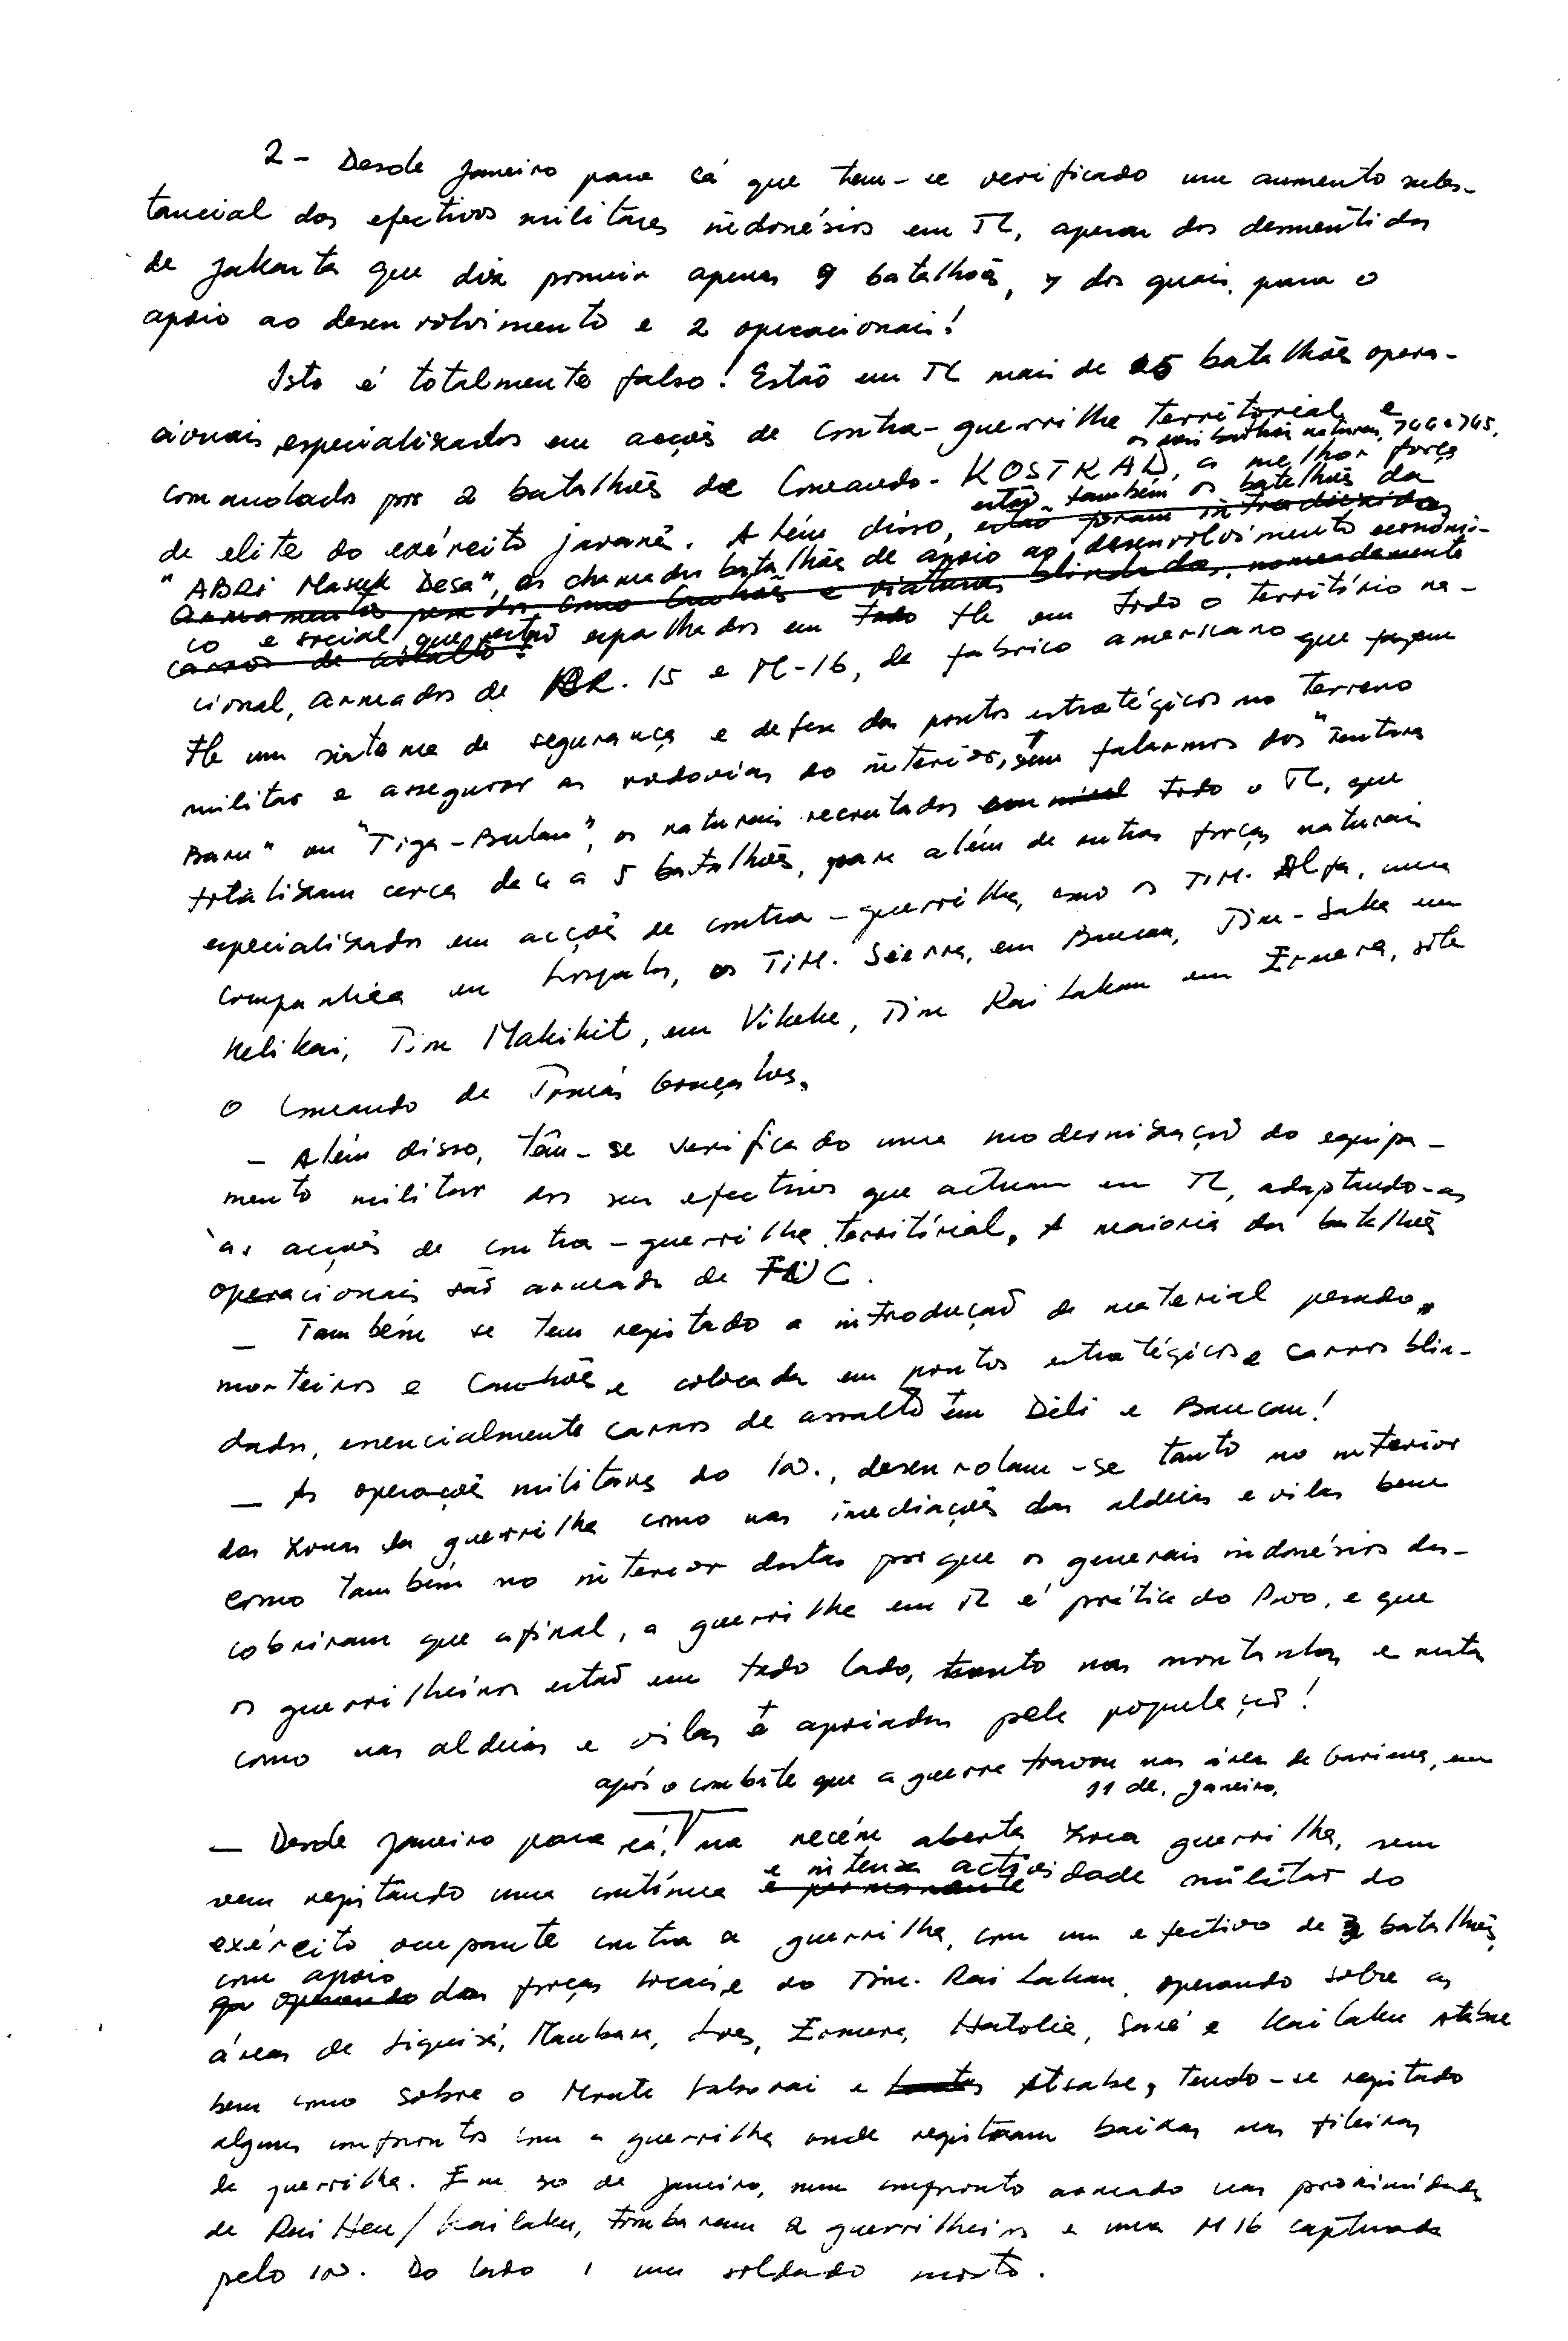 2 - Desde Janeiro para cá que tem-se verificado um aumento subs-
tancial dos efectivos militares indonésios em TL, apesar dos desmentidos
de Jakarta que diz possuir apenas 9 batalhões, 7 dos quais, para o
apoio ao desenvolvimento e 2 operacionais!
Isto é totalmente falso! Estão em TL mais de 15 batalhões opera-
cionais, especializados em acções de contra-guerrilha territorial e
os dois batalhões naturais, 744 e 745,
comandados por 2 batalhões de Comando-KOSTRAD, a melhor força
de elite do exército javanês. Além disso, estão também os batalhões da
estão foram introduzidos
"ABRI Masuk Desa", os chamados batalhões de apoio ao desenvolvimento económi-
armamentos pesados como canhões e viaturas blindadas, nomeadamente
co e social, que estão espalhados em todo TL em todo o território na-
carros de assalto!
cional, armados de AR.15 e M-16, de fabrico americano que fazem
TL um sistema de segurança e defesa dos pontos estratégicos no terreno
militar e assegurar as rodovias do interior, sem falarmos dos "Tentara
Baru" ou "Tiga-Bulan", os naturais recrutados todo o TL, que
totalizam cerca de 4 a 5 batalhões, para além de outras forças naturais
especializadas em acções de contra-guerrilha, como os TIM. Alfa, uma
companhia em Lospalos, os TIM. Sierra, em Baucau, Tim-Saka em
Kelikai, Tim Makikit, em Vikeke, Tim Rai Lakan em Ermera, sob
o Comando de Tomás Gonçalves.
- Além disso, têm-se verificado uma modernização do equipa-
mento militar dos seus efectivos que actuam em TL, adaptando-as
às acções de contra-guerrilha territorial. A maioria dos batalhões
operacionais são armados de FNC.
- Também se tem registado a introdução de material pesado,
morteiros e canhões e colocados em pontos estratégicos e carros blin-
dados, essencialmente carros de assalto em Dili e Baucau!
- As operações militares do in., desenrolam-se tanto no interior
das zonas da guerrilha como nas imediações das aldeias e vilas bem
como também no interior destas porque os generais indonésios des-
cobriram que afinal, a guerrilha em TL é prática do Povo, e que
os guerrilheiros estão em todo lado, tanto nas montanhas e matas
como nas aldeias e vilas e apoiados pela população!
após o combate que a guerra travou nas áreas de em
11 de. Janeiro,
- Desde Janeiro para cá, na recém aberta zona guerrilha, sem
vem registando uma contínua e intensa actividade militar do
e permanente
exército ocupante contra a guerrilha, com um efectivo de 3 batalhões,
com apoio
operando das forças locais e do Tim. Rai Lakan, operando sobre as
áreas de Liquiçá, Maubara, Loes, Ermera, Hatolia, e Kailaku Atabae
bem como sobre o Monte e Atsabe, tendo-se registado
alguns confrontos com a guerrilha onde registaram baixas nas fileiras
da guerrilha. Em 30 de Janeiro, num confronto armado nas proximidades
de Rai Heu/Kailaku, tombaram 2 guerrilheiros e uma M16 capturada
pelo in. Do lado, um soldado morto.